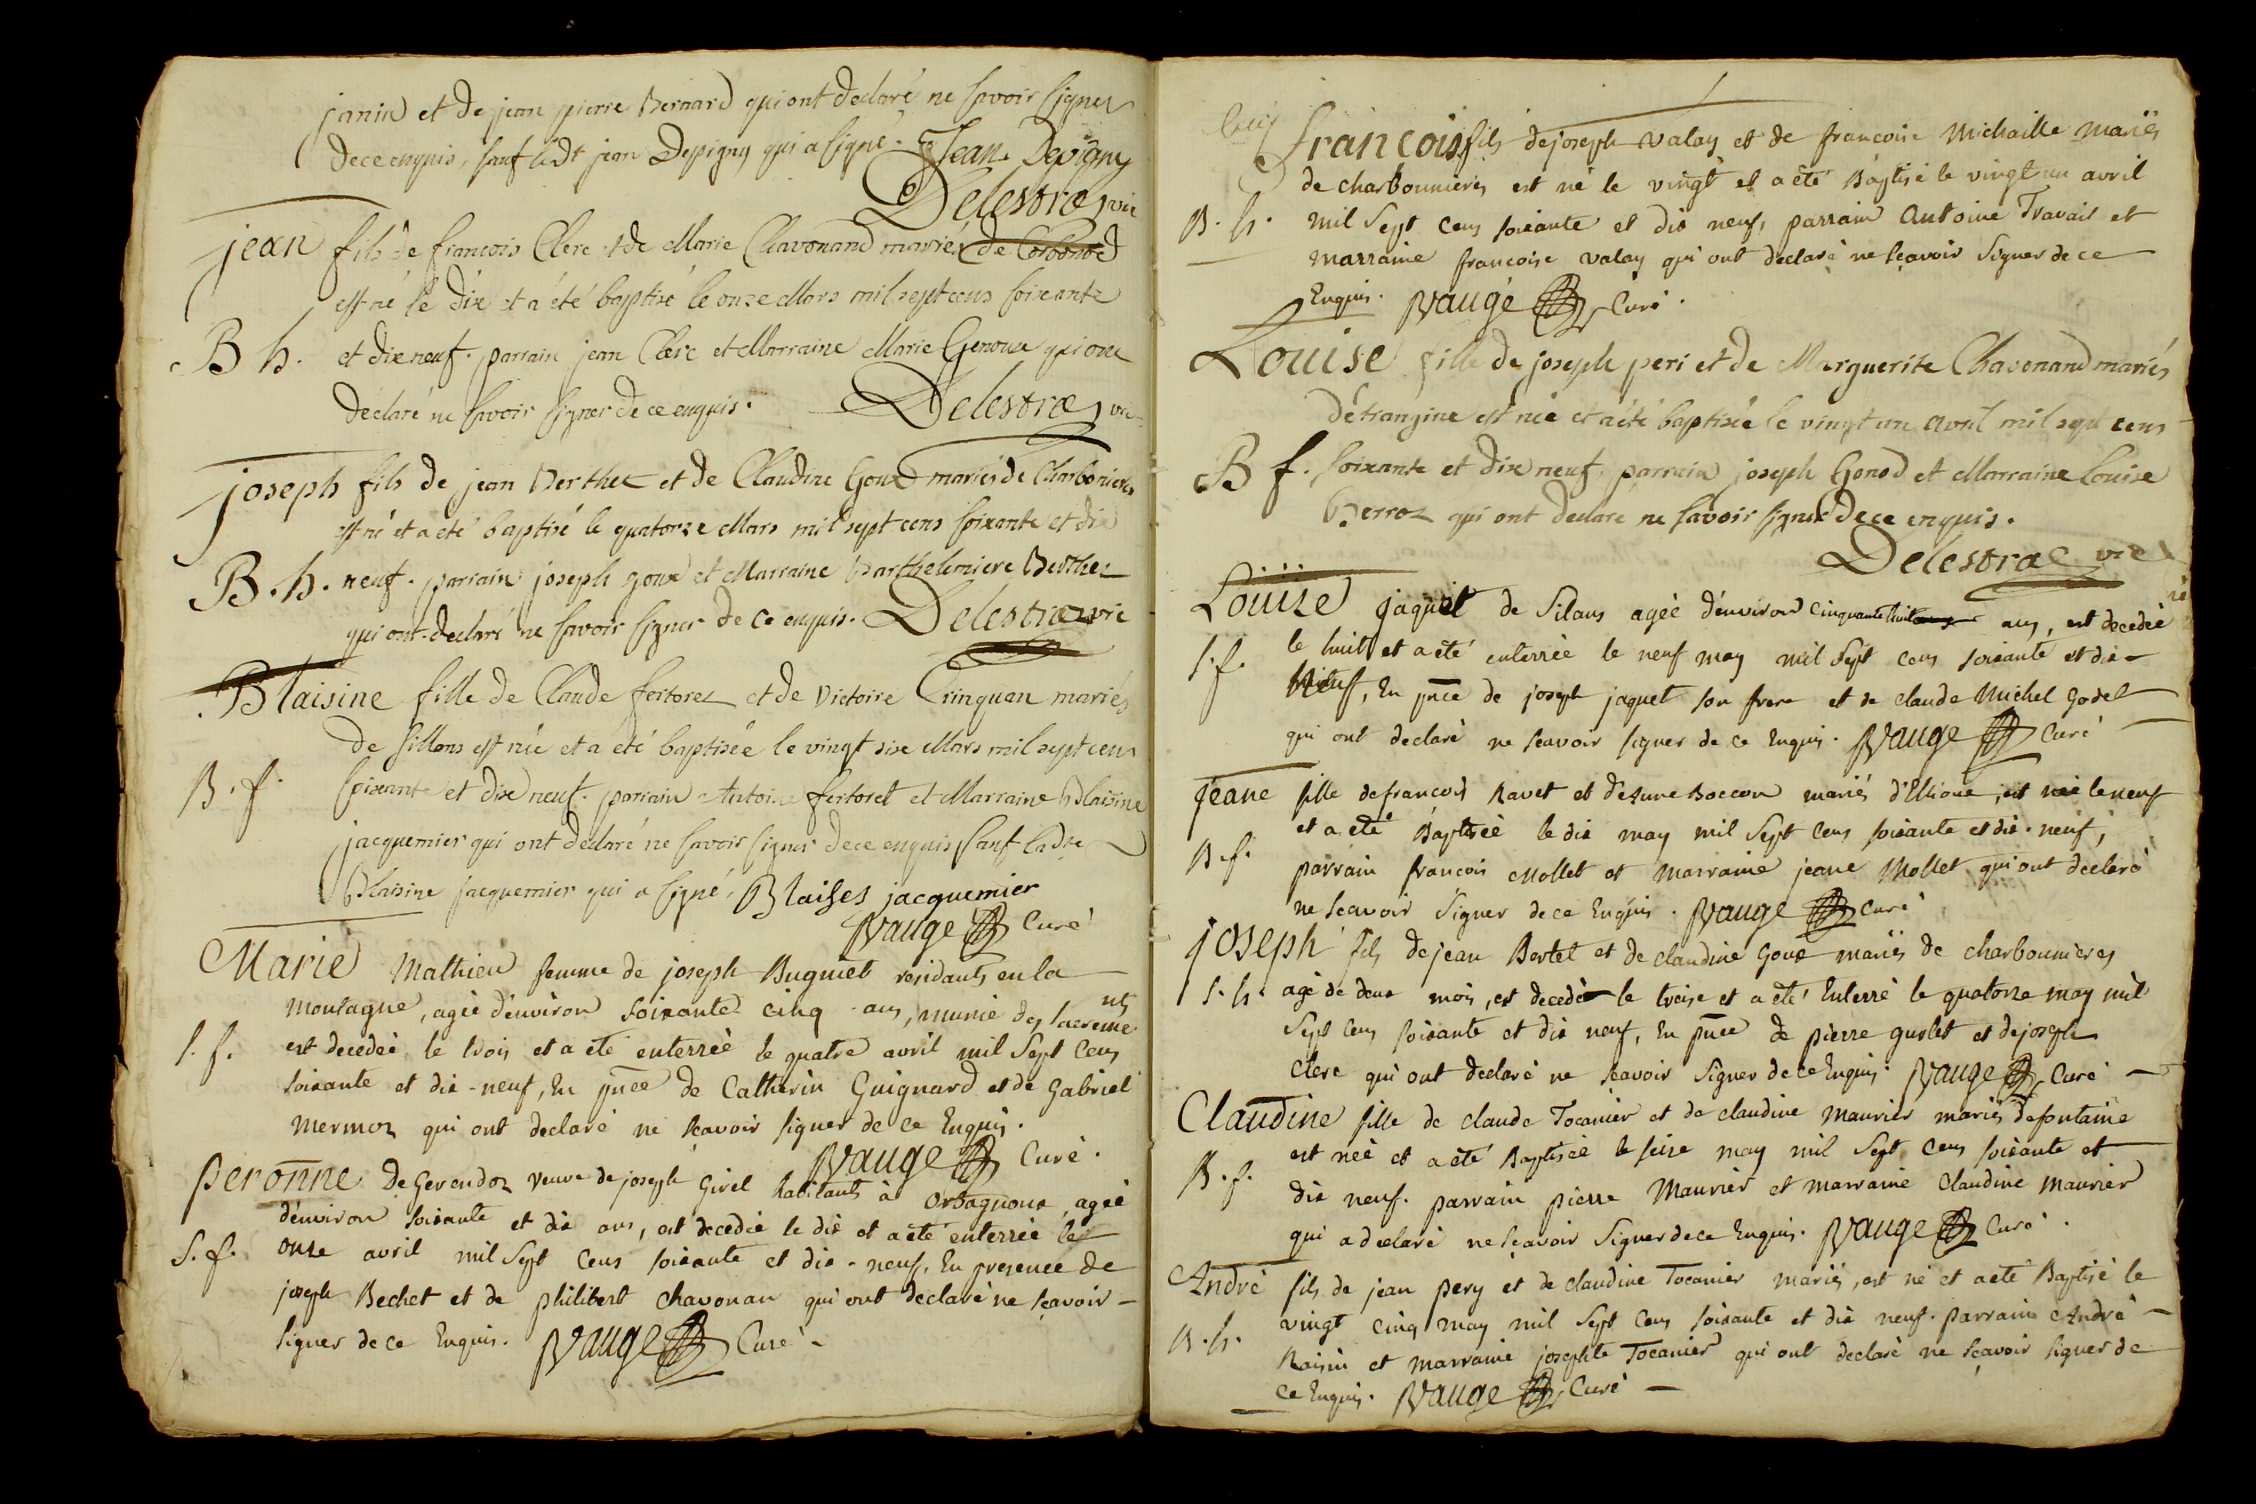 janin et de jean pierre Bernard qui ont declaré ne savoir signer
de ce enquis, sauf ledt jean Depigny qui a signé. Jean Depigny
Delestra vic
jean fils de francois Clerc et de Marie Chavonand mariés de Corbonod
est né le dix et a été baptisé le onze Mars mil sept cens soixante
B h. et dix neuf. parrain jean Clerc et Marraine Marie Genoux qui ont
declaré ne savoir signer de ce enquis. Delestra vic
joseph fils de jean Berthet et de Claudine Goux mariés de Charbonieres
est né et a eté baptisé le quatorze Mars mil sept cens soixante et dix
B. h. neuf. parrain joseph goux et Marraine Barthelemiere Berthet
qui ont declaré ne savoir signer de ce enquis. Delestra vic
Blaisine fille de Claude fertoret et de victoire Trinquan mariés
de sillans est née et a eté baptisée le vingt sixe Mars mil sept cens
B. f. soixante et dix neuf. parrain Antoine fertoret et Marraine Blaisine
jacquemier qui ont declaré ne savoir signer de ce enquis sauf ladte
Blaisine jacquemier qui a signé. Blaises jacquemier
Vauge Curé
Marie Mathieu femme de joseph Buguiet residants en la
montagne, agée d'environ soixante cinq ans, munie des sacrements
S. f. est decedée le trois et a eté enterrée le quatre avril mil Sept Cens
soixante et dix-neuf, En pñce de Catherin Guignard et de Gabriel
Mermoz qui ont declaré ne scavoir signer de ce Enquis.
Vauge Curé.
peronne de Gerendoz veuve de joseph Girel habitants à Orbagnoux, agée
d'environ soixante et dix ans, est decedée le dix et a eté enterrée le
S. f. onze avril mil Sept Cens soixante et dix-neuf. En presence de
joseph Bechet et de philibert Chavonan qui ont declaré ne scavoir
signer de ce Enquis. Vauge Curé
francois fils de joseph valay et de francoise Michaille mariés
de charbonnieres est né le vingt et a eté Baptisé le vingt un avril
B. h. mil Sept Cens soixante et dix neuf, parrain Antoine Travail et
marraine francoise valay qui ont declaré ne scavoir Signer de ce
Enquis. Vauge Curé.
Louise fille de joseph peri et de Marguerite Chavonand mariés
d'étrangine est née et a été baptisée le vingt un avril mil sept cens
B f. soixante et dix neuf. parrain joseph Gonod et Marraine Louise
Berroz qui ont declaré ne savoir signer de ce enquis.
Delestra vic
Louise jaquet de Silans agée d'environ cinquante huit ans, est decedée
S. f. le huit et a eté enterrée le neuf may mil Sept Cens soixante et dix
neuf, En pñce de joseph jaquet son frere et de claude Michel Godet
qui ont declaré ne scavoir signer de ce Enquis. Vauge Curé
jeane fille de francois Ravet et d'Anne Boccon mariés d'Elliouе, est née le neuf
et a eté Baptisée le dix may mil Sept Cens soixante et dix-neuf,
B. f. parrain francois Mollet et Marraine jeane Mollet qui ont declaré
ne scavoir Signer de ce Enquis. Vauge Curé
joseph fils de jean Bertet et de claudine Goux mariés de charbonnieres
S. h. agé de deux mois, est decedé le treise et a eté Enterré le quatorze may mil
Sept Cens soixante et dix neuf, En pñce de pierre guolet et de joseph
Clerc qui ont declaré ne scavoir Signer de ce Enquis. Vauge Curé
Claudine fille de claude Tocanier et de claudine maurier mariés de fontaine
est née et a eté Baptisée le seize may mil Sept Cens soixante et
B. f. dix neuf. parrain pierre Maurier et marraine Claudine Maurier
qui a declaré ne scavoir Signer de ce Enquis. Vauge Curé.
André fils de jean pery et de claudine Tocanier mariés, est né et a eté Baptisé le
vingt cinq may mil Sept Cens soixante et dix neuf. parrain André
B. h. Raisin et marraine josephte Tocanier qui ont declaré ne scavoir signer de
ce Enquis. Vauge Curé